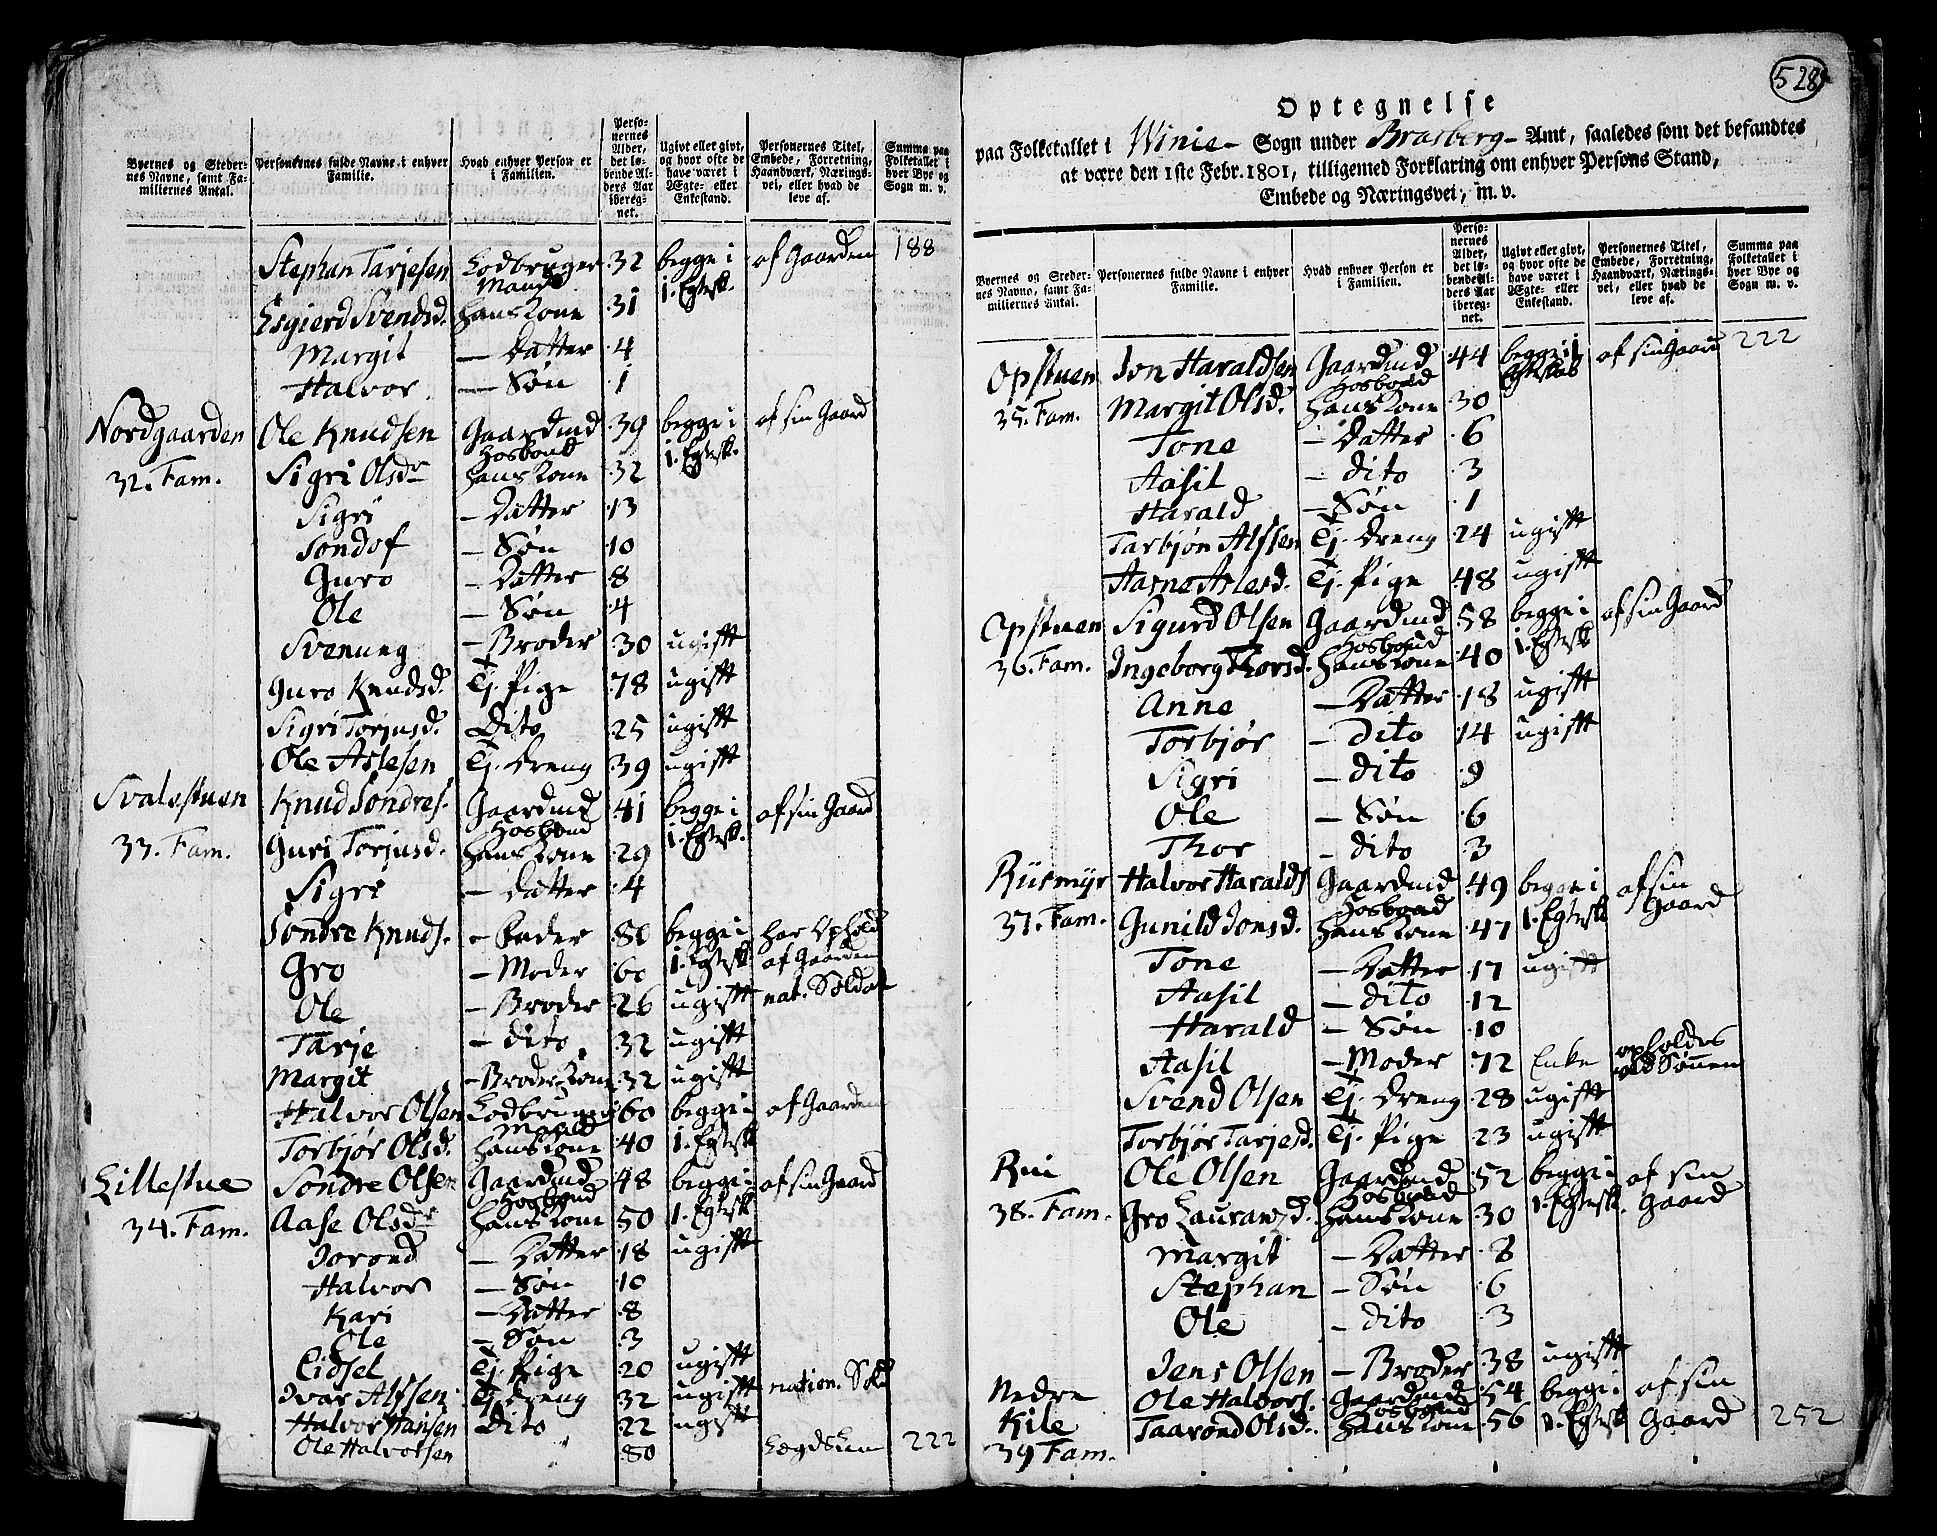 Byernes og Steder-
nes Navne, samt Fa-
miliernes Antal.
Personernes fulde Navne i enhver
Familie.
Hvad enhver Person er
i Familien.
Perso-
nernes
Alder,
det lø-
bende Al-
ders Aar
ibereg-
net.
Ugivt eller givt,
og hvor ofte de
have været i
Ægte- eller
Enkestand.
Personernes Titel,
Embede, Forretning,
Haandværk, Nærings-
vei, eller hvad de
leve af.
Summa paa
Folketallet i
hver Bye og
Sogn m. v.
Stephan Tarjesen Lodbruger 32 begge i af Gaarden 188
Mand 1. Egtesk.
Esgierd Svendsd. Hans Kone 31
Margit — Datter 4
Halvor — Søn 1
Nordgaarden Ole Knudsen Gaardmd 39 begge i af sin Gaard
Hosbond 1. Egtesk.
32. Fam. Sigri Olsdr Hans Kone 32
Sigri — Datter 13
Sondof — Søn 10
Guro — Datter 8
Ole — Søn 4
Svenung — Broder 30 ugift
Guro Knudsd. Tj. Pige 78 ugift
Sigri Torjusd. Dito 25 ugift
Ole Aslesen Tj. Dreng 39 ugift
Svalestuen Knud Sondres. Gaardmd 41 begge i af sin Gaard
Hosbond 1. Egtesk.
33. Fam. Guri Torjusd. Hans Kone 29
Sigri — Datter 4
Sondre Knuds. — Fader 80 begge i har Ophold
Gro — Moder 60 1. Egtesk. af Gaarden
Ole — Broder 26 ugift nat. Soldat
Tarje — Dito 32 ugift
Margit — Broders Kone 32 ugift
Halvor Olsen Lodbruger 60 begge i af Gaarden
Mand
Torbjør Olsd. Hans Kone 40 1. Egtesk
Lillestue Sondre Olsen Gaardmd 48 begge i af sin Gaard
Hosbond
34. Fam. Aase Olsdr Hans Kone 50 1. Egtesk
Jorond — Datter 18 ugift
Halvor — Søn 10
Kari — Datter 8
Ole — Søn 3
Eidsel Tj. Pige 20 ugift
Ivar Alfsen Tj. Dreng 32 ugift nation. Sold
Halvor Hansen Dito 22 ugift
Ole Halvorsen 80 Lægdslem 222
528
Optegnelse
paa Folketallet i Winie Sogn under Brasberg Amt, saaledes som det befandtes
at være den 1ste Febr. 1801, tilligemed Forklaring om enhver Persons Stand,
Embede og Næringsvei, m. v.
Byernes og Steder-
nes Navne, samt Fa-
miliernes Antal.
Personernes fulde Navne i enhver
Familie.
Hvad enhver Person er
i Familien.
Perso-
nernes
Alder,
det lø-
bende Al-
ders Aar
ibereg-
net.
Ugivt eller givt,
og hvor ofte de
have været i
Ægte- eller
Enkestand.
Personernes Titel,
Embede, Forretning,
Haandværk, Nærings-
vei, eller hvad de
leve af.
Summa paa
Folketallet i
hver Bye og
Sogn m. v.
Opstuen Jon Haraldsen Gaardmd 44 begge i af sin Gaard 222
Hosbond
35. Fam. Margit Olsd. Hans Kone 30
Tone — Datter 6
Aasil — Dito 3
Harald — Søn 1
Tarbjøn Alfsen Tj. Dreng 24 ugift
Aarne Aslesd. Tj. Pige 48 ugift
Opstuen Sigurd Olsen Gaardmd 58 begge i af sin Gaard
Hosbond
36. Fam. Ingeborg Thorsd. Hans Kone 40 1. Egtesk
Anne — Datter 18 ugift
Torbjør — Dito 14 ugift
Sigri — Dito 9
Ole — Søn 6
Thor — Dito 3
Rusmyr Halvor Haralds Gaardmd 49 begge i af sin
Hosbond Gaard
37. Fam. Gunild Jonsd. Hans Kone 47 1. Egtesk
Tone — Datter 17 ugift
Aasil — Dito 12
Harald — Søn 10
Aasil — Moder 72 Enke opholdes
ved Sønnen
Svend Olsen Tj. Dreng 28 ugift
Torbjør Tarjesd. Tj. Pige 23 ugift
Rui Ole Olsen Gaardmd 52 begge i af sin
Hosbond
38. Fam. Gro Lauransd. Hans Kone 30 1. Egtesk. Gaard
Margit — Datter 8
Stephan — Søn 6
Ole — Dito 3
Jens Olsen — Broder 38 ugift
Nedre Ole Halvors. Gaardmd 54 begge i af sin
Hosbond
Kile Taarond Olsd. Hans Kone 56 1. Egtesk Gaard 252
39 Fam.